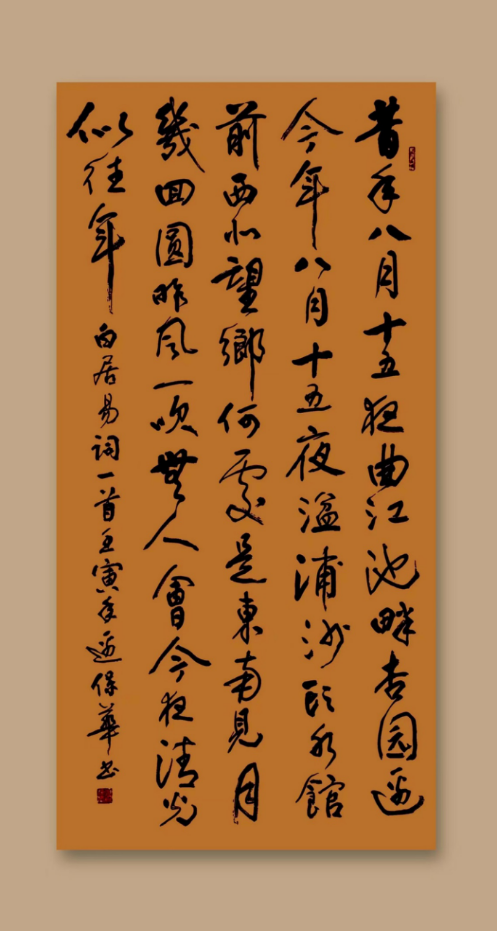 昔年八月十五夜曲江池畔杏园邊
今年八月十五夜湓浦沙頭水館
前西北望鄉何處是東南見月
幾回圓昨風一吹無人會今夜清光
似往年 白居易詞一首壬寅年邊保華书